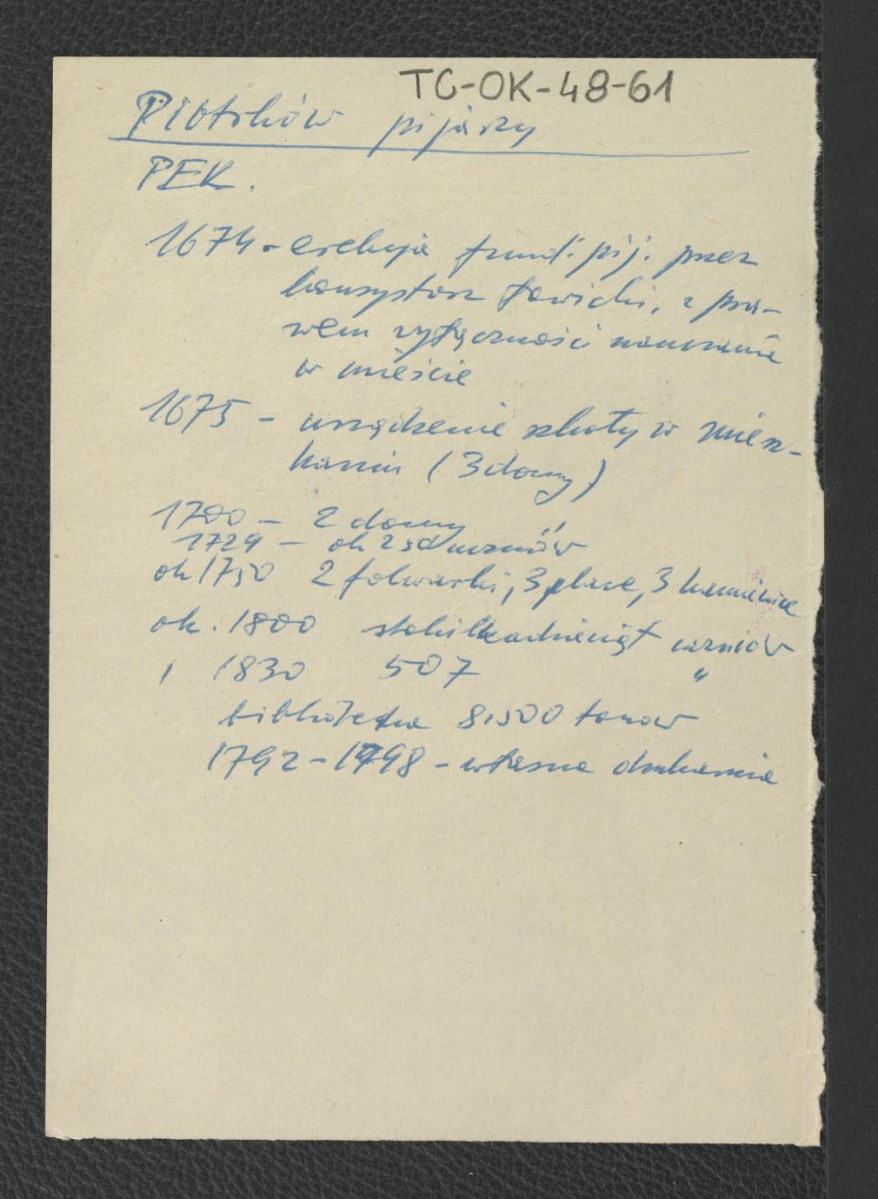 TC-OK-48-61
Piotrków pijarzy
PEK.
1674 - erekcja fund. pij. przez
konsystorz łowicki, z pra-
wem wyłączności nauczania
w mieście
1675 - urządzenie szkoły w miesz-
kaniu (3 domy)
1700 - 2 domy
1729 - ok 250 uczniów
ok 1750 2 folwarki, 3 place, 3 kamienice
ok. 1800 stokilkadziesiąt uczniów
1830 507 "
biblioteka 8.500 tomów
1792-1798 - własna drukarnia